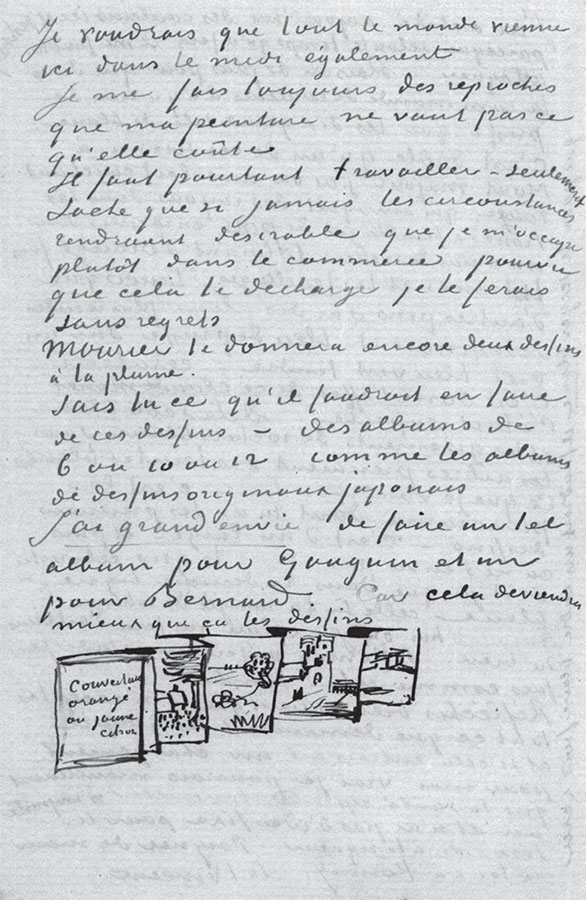 Je voudrais que tout le monde vienne
ici dans le midi également
Je me fais toujours des reproches
que ma peinture ne vaut pas ce
qu'elle coûte.
Il faut pourtant travailler – seulement
sache que si jamais les circonstances
rendraient desirable que je m'occupe
plutôt dans le commerce pourvu
que cela te decharge je le ferais
sans regrets
Mourier te donnera encore deux dessins
à la plume.
Sais tu ce qu'il faudrait en faire
de ces dessins – des albums de
6 ou 10 ou 12 comme les albums
de dessins originaux japonais
J'ai grand envie de faire un tel
album pour Gauguin et un
pour Bernard Car cela deviendra
mieux que ça les dessins
Couverture
orangé
ou jaune
citron